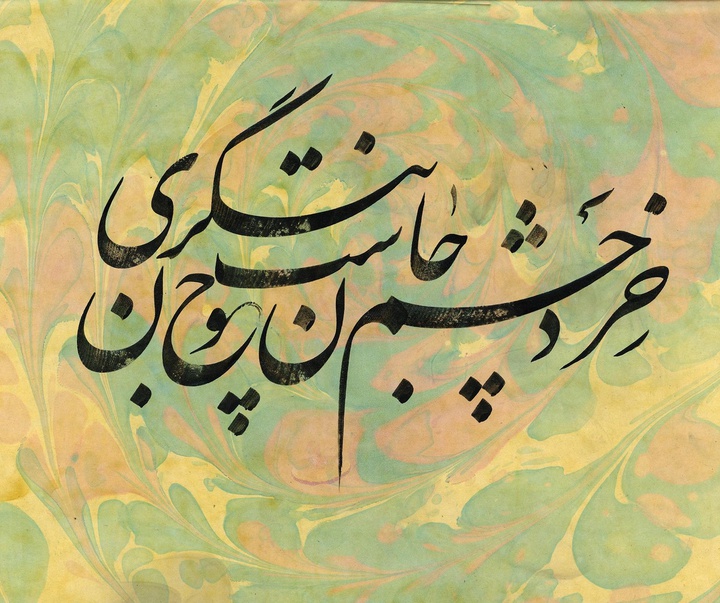 خرد چشم جانست چون بنگری